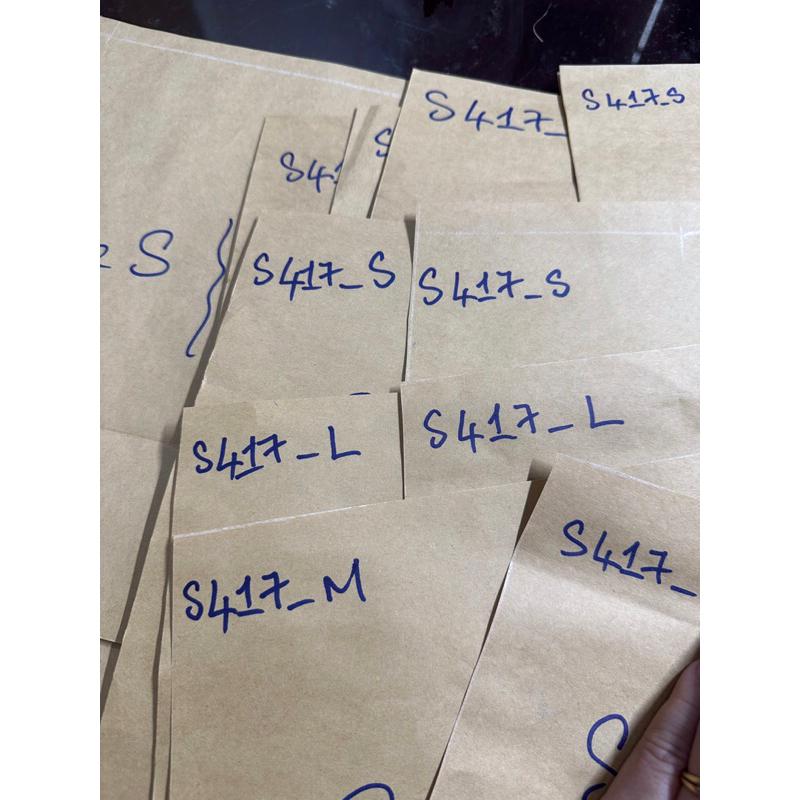 S417_
S417_S
S41
S
S
S417_S
S417_S
S417_L
S417_L
S417_
S417_M
S